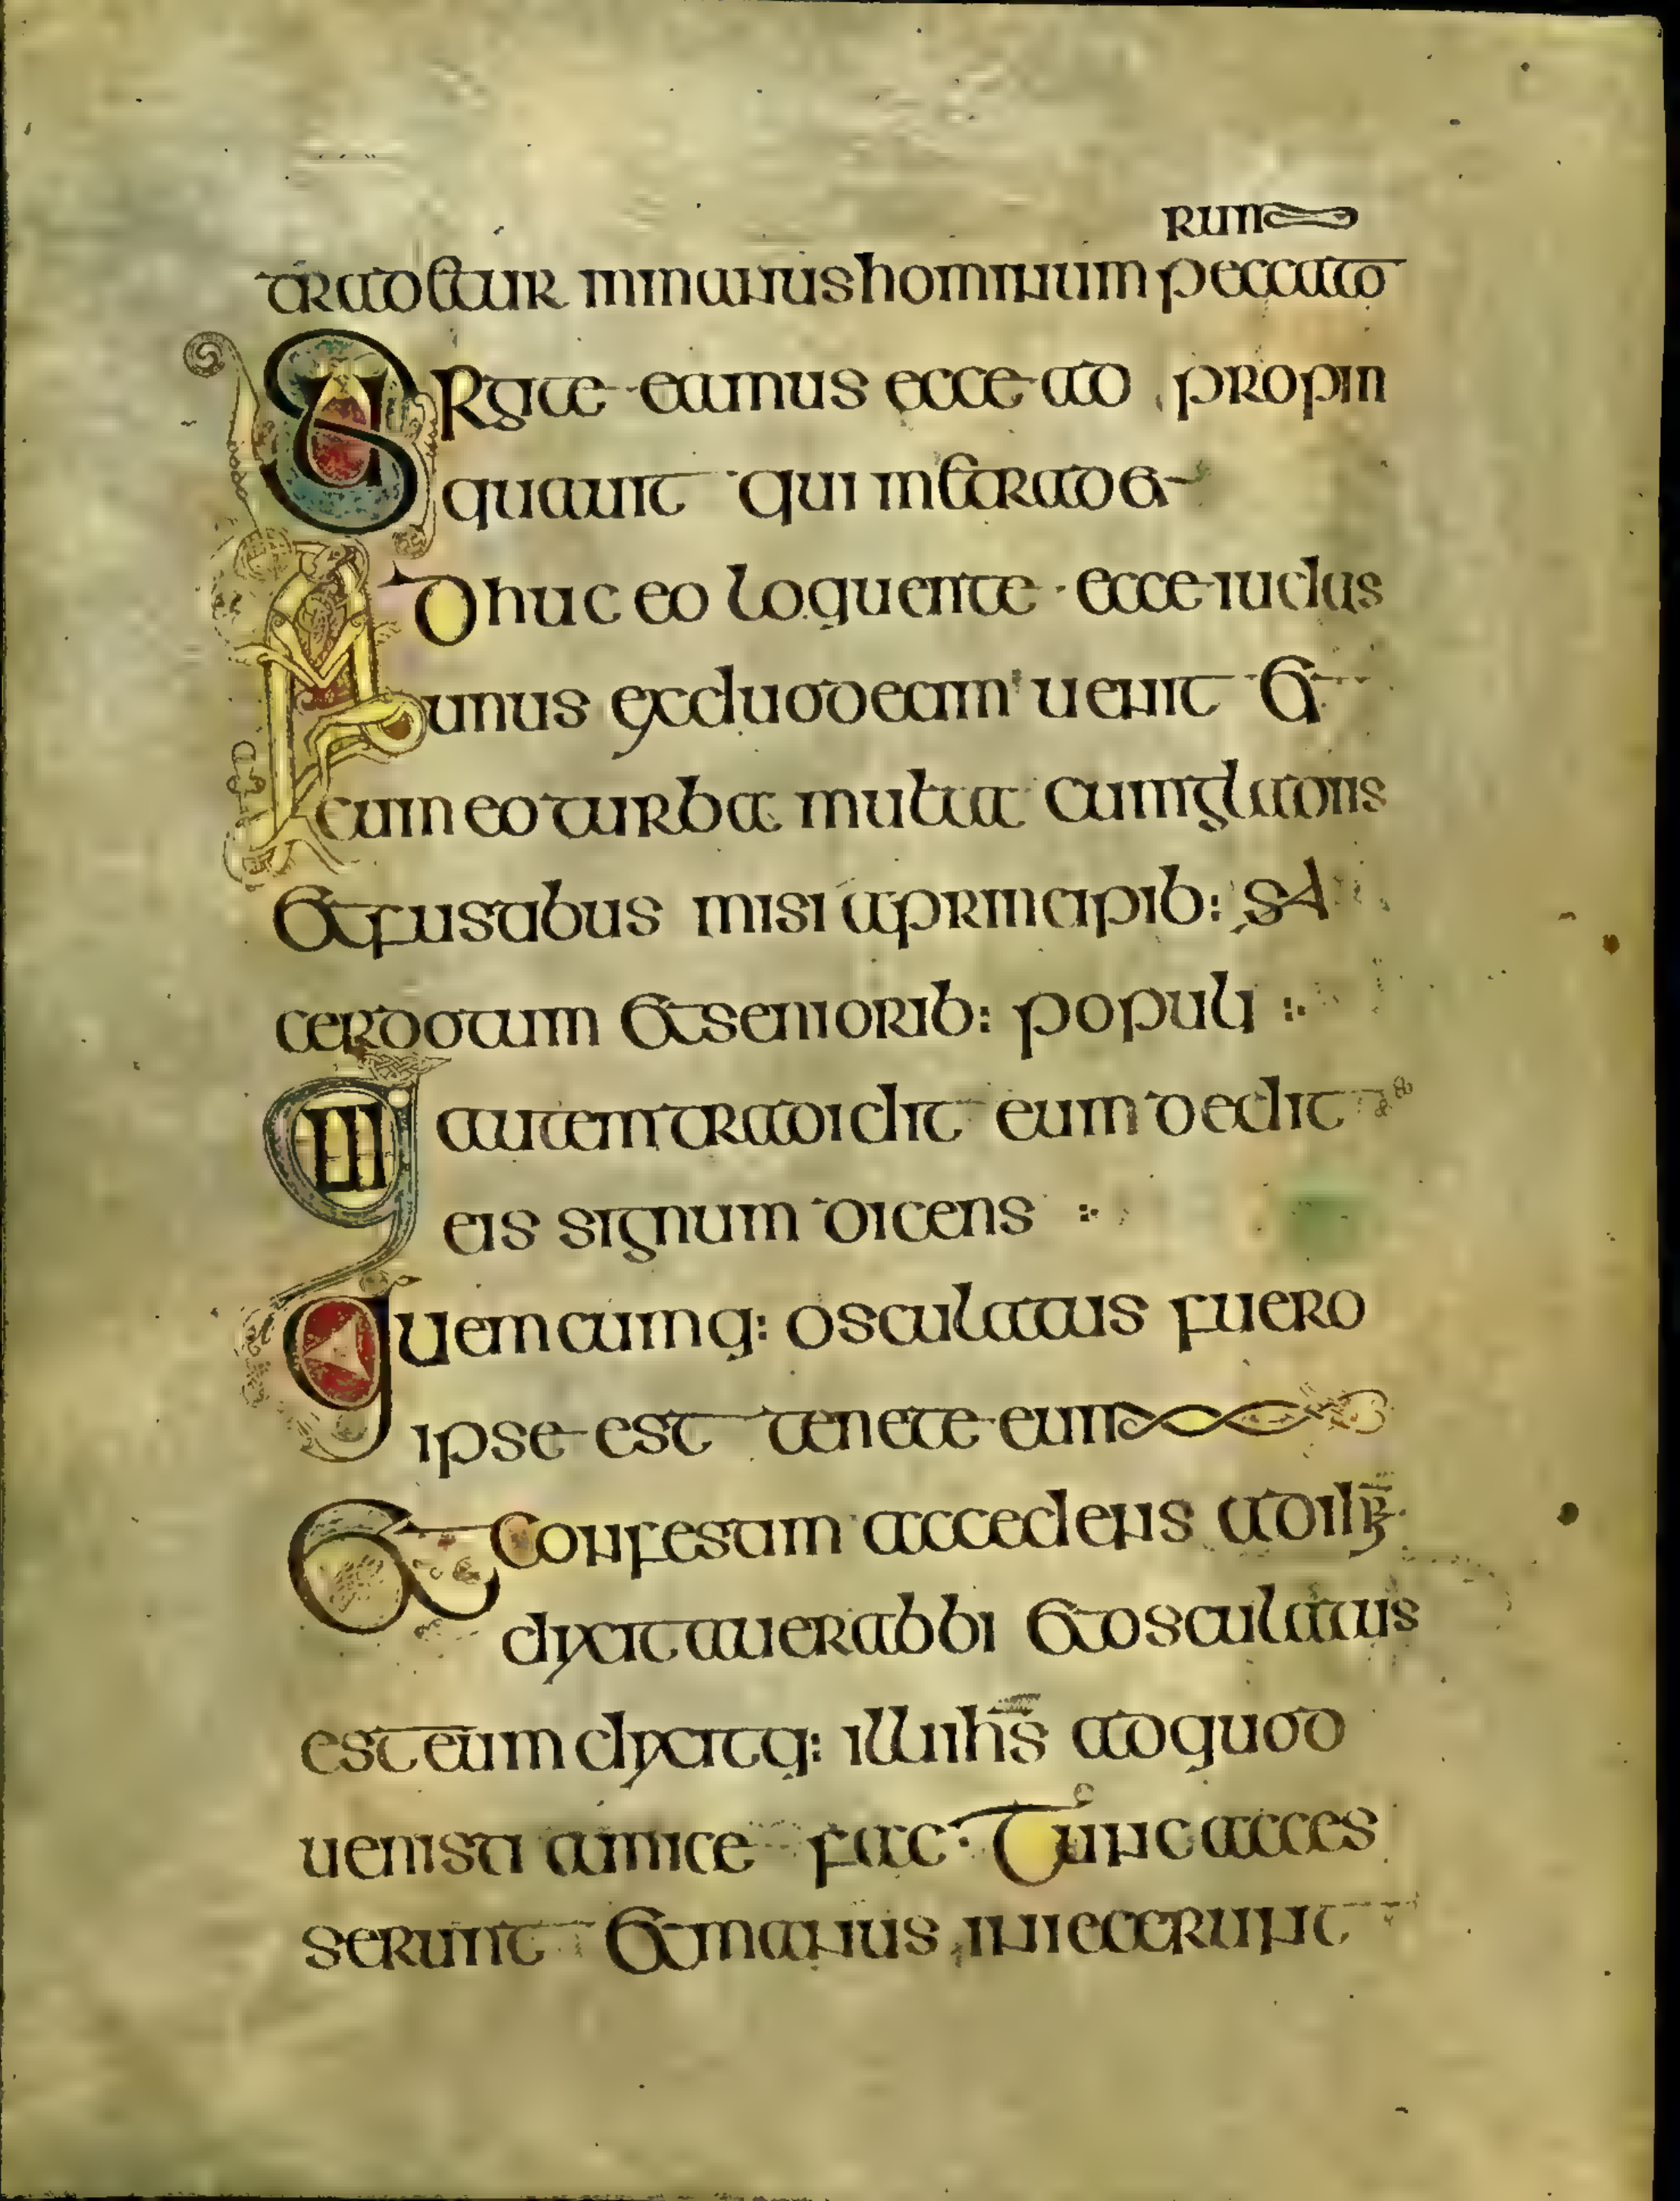 rum
tradetur in manus hominum peccato
Surgite eamus ecce ad propin
quauit qui me tradet
Adhuc eo loquente ecce iudas
unus ex duodecim uenit et
cum eo turba multa cum gladiis
et fustibus misi a principib: sa
cerdotum et seniorib: populi :·
Qui autem tradidit eum dedit
eis signum dicens :·
quemcumq: osculatus fuero
ipse est tenete eum
Et confesam accedens ad ihm
dixit aue rabbi et osculatus
est eum dixitq: illi ihs ad quod
uenisti amice fac· Tunc acces
serunt et manus iniecerunt